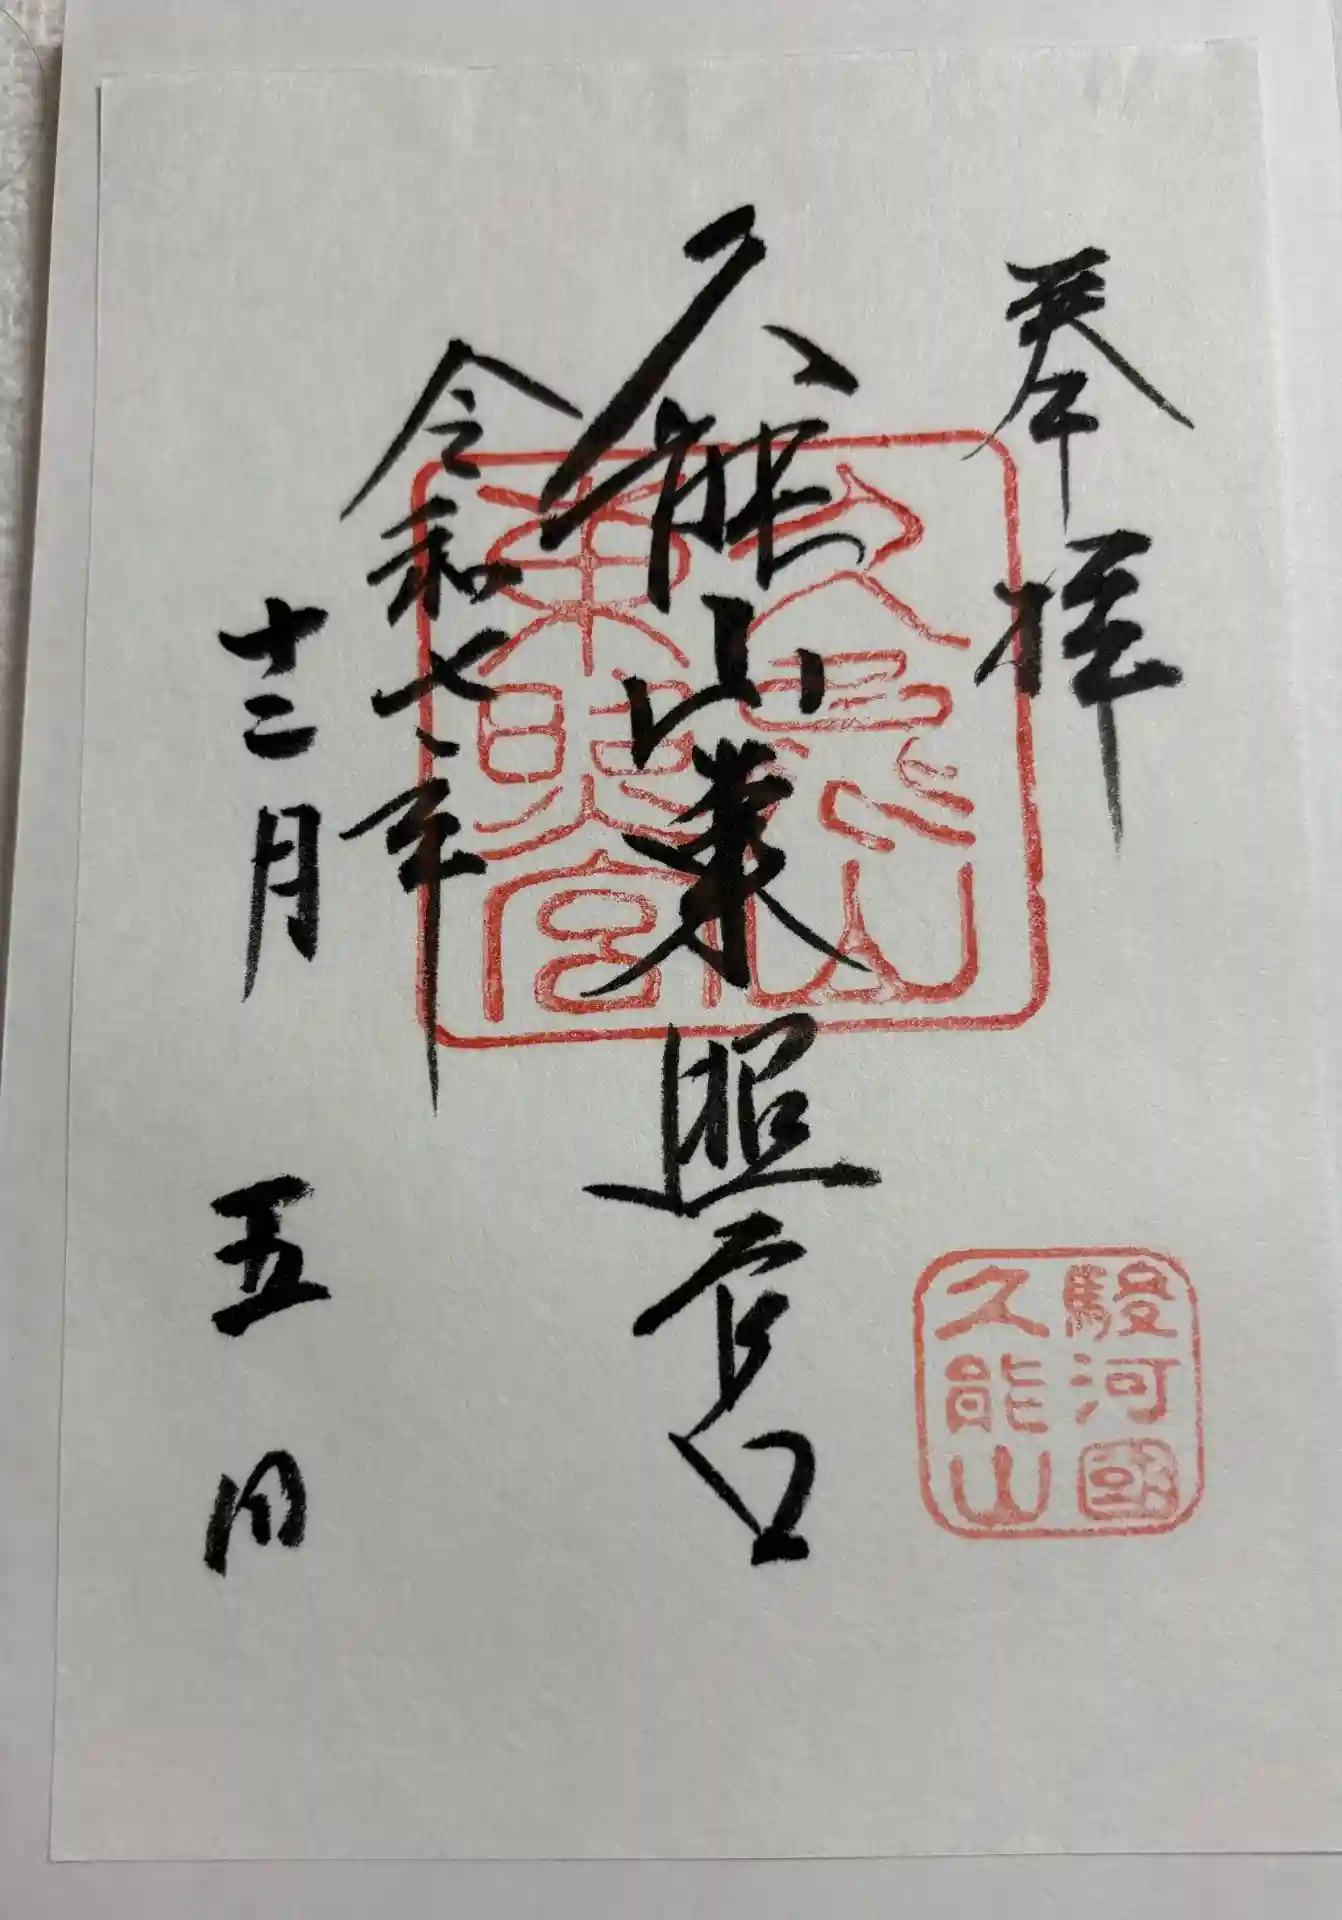 奉拝
久能山東照宮
令和七年
十二月五日
久能山
東照宮
駿河國
久能山